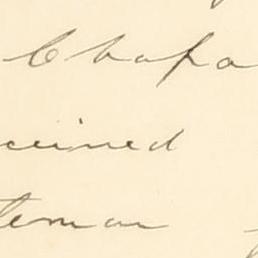 Chapa
ceived
teman